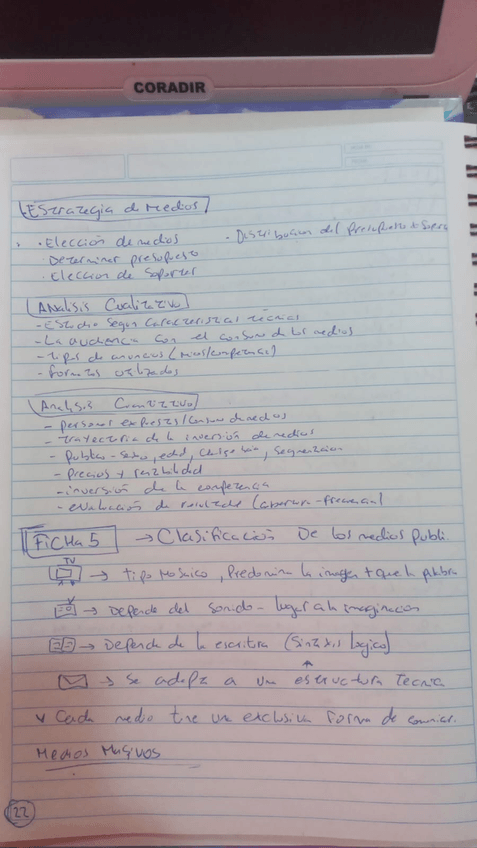 CORADIR
Estrategia de Medios
· Elección de medios · Distribucion del Presupuesto
· Determinar presupuesto
· Eleccion de Soportes
Analisis Cualitativo
- Estudio segun Caracteristicas técnicas
- La audiencia con el consumo de los medios
- tipos de anuncios
- formatos utilizados
Analisis Cuantitativo
- personas expuestas/consumo de medios
- trayectoria de la inversión de medios
- edad,
- Precios y rentabilidad
- inversión de la
- evaluación de
FiCHA 5 → Clasificación De los medios publi.
TV
→ tipo Mosaico, Predomina la imagen + que la palabra
→ Depende del Sonido - lugar a la imaginacion
→ Depende de la escritura (Sintaxis logico)
→ Se adapta a una estructura Tecnica
Cada medio tiene una exclusiva forma de comunicar.
Medios Masivos
22